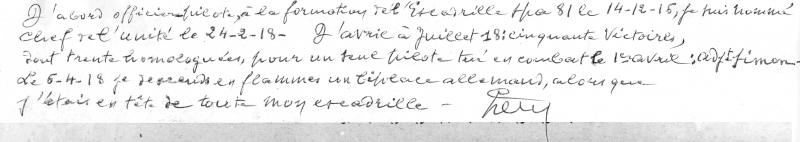 D'abord officier pilote, à la formation de l'Escadrille Spa 81 le 14-12-15, je suis nommé
chef de l'unité le 24-2-18 - D'avril à Juillet 18: cinquante Victoires,
dont trente homologuées, pour un seul pilote tué en combat le 1er avril: adjt Simon -
Le 6-4-18 je descends en flammes un biplace allemand, alors que
j'étais en tête de toute mon escadrille -